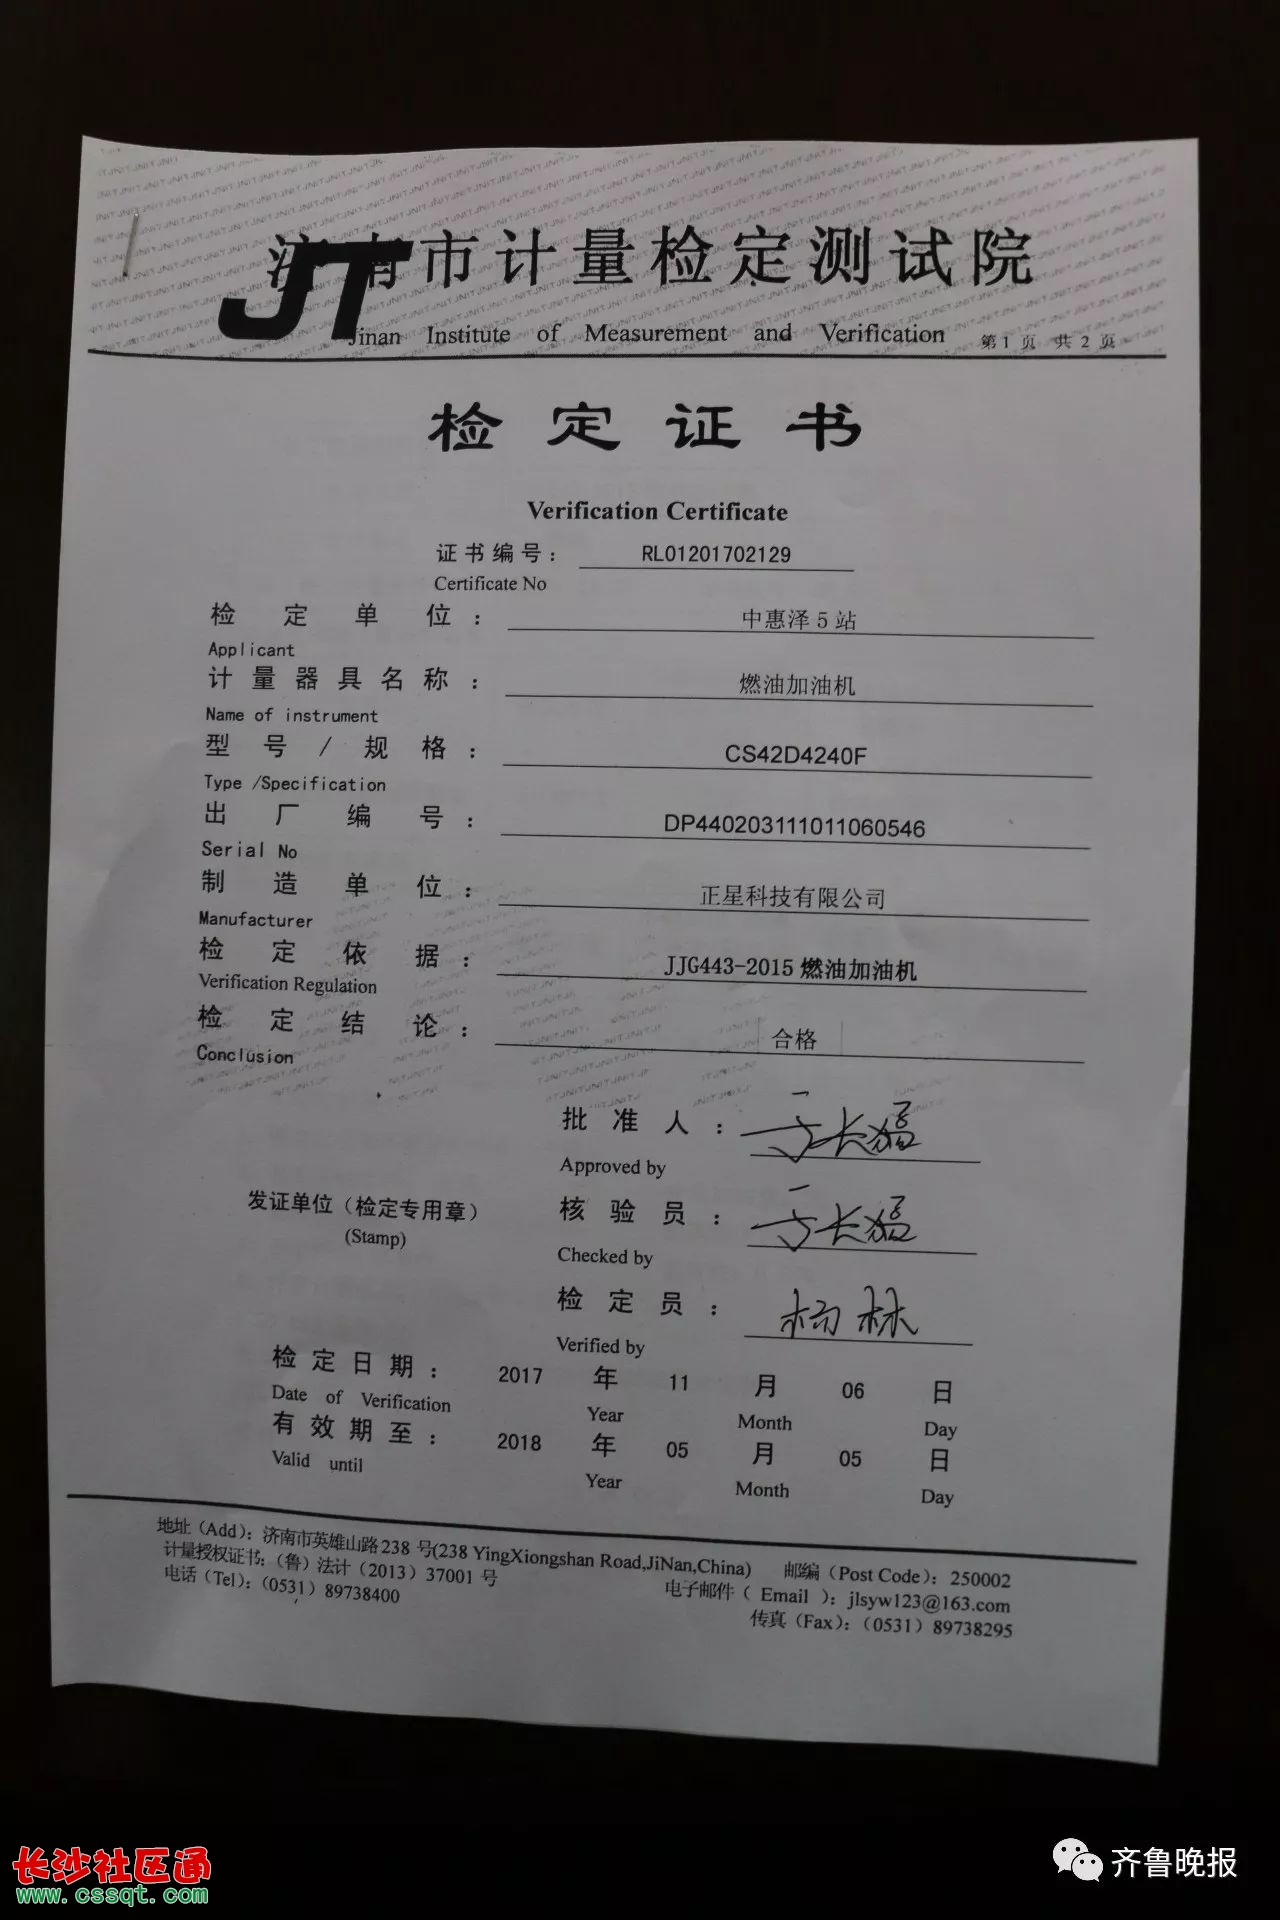 济南市计量检定测试院
JT
Jinan Institute of Measurement and Verification 第1页 共2页
检定证书
Verification Certificate
证书编号: RL01201702129
Certificate No
检定单位: 中惠泽5站
Applicant
计量器具名称: 燃油加油机
Name of instrument
型号/规格: CS42D4240F
Type /Specification
出厂编号: DP440203111011060546
Serial No
制造单位: 正星科技有限公司
Manufacturer
检定依据: JJG443-2015 燃油加油机
Verification Regulation
检定结论: 合格
Conclusion
批准人:
Approved by
发证单位(检定专用章) 核验员:
(Stamp)
Checked by
检定员: 杨林
Verified by
检定日期: 2017 年 11 月 06 日
Date of Verification Year Month Day
有效期至: 2018 年 05 月 05 日
Valid until Year Month Day
地址(Add): 济南市英雄山路238号(238 YingXiongshan Road,JiNan,China) 邮编(Post Code): 250002
计量授权证书:(鲁)法计(2013)37001号 电子邮件( Email ): jlsyw123@163.com
电话(Tel):(0531)89738400 传真(Fax):(0531)89738295
长沙社区通
www.cssqt.com
齐鲁晚报